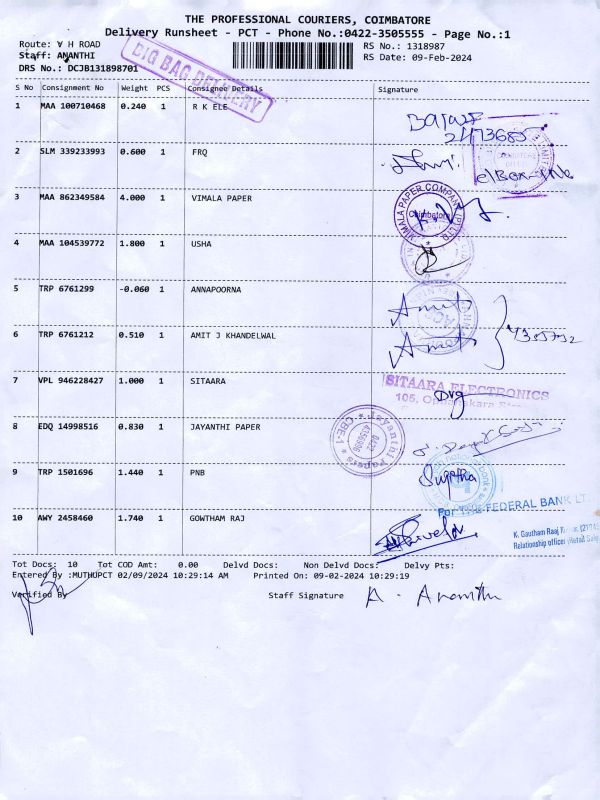 THE PROFESSIONAL COURIERS, COIMBATORE
Delivery Runsheet - PCT - Phone No.:0422-3505555 - Page No.:1
Route: V H ROAD
RS No.: 1318987
Staff: ANANTHI
RS Date: 09-Feb-2024
DRS No.: DCJB131898701
BIG BAG DELIVERY
S No Consignment No Weight PCS Consignee Details Signature
1 MAA 100710468 0.240 1 R K ELE
2 SLM 339233993 0.600 1 FRQ
3 MAA 862349584 4.000 1 VIMALA PAPER
VIMALA PAPER COMPANY (P) LTD
Coimbatore
4 MAA 104539772 1.800 1 USHA
5 TRP 6761299 -0.060 1 ANNAPOORNA
Amit
6 TRP 6761212 0.510 1 AMIT J KHANDELWAL
Amit
7 VPL 946228427 1.000 1 SITAARA
SITAARA ELECTRONICS
105,
8 EDQ 14998516 0.830 1 JAYANTHI PAPER
Jayanthi Papers
0422
CBE-1
9 TRP 1501696 1.440 1 PNB
Sujatha
For THE FEDERAL BANK
10 AWY 2458460 1.740 1 GOWTHAM RAJ
K. Gautham Raaj
Relationship officer
Tot Docs: 10 Tot COD Amt: 0.00 Delvd Docs: Non Delvd Docs: Delvy Pts:
Entered By :MUTHUPCT 02/09/2024 10:29:14 AM Printed On: 09-02-2024 10:29:19
Verified By Staff Signature A. Ananthi